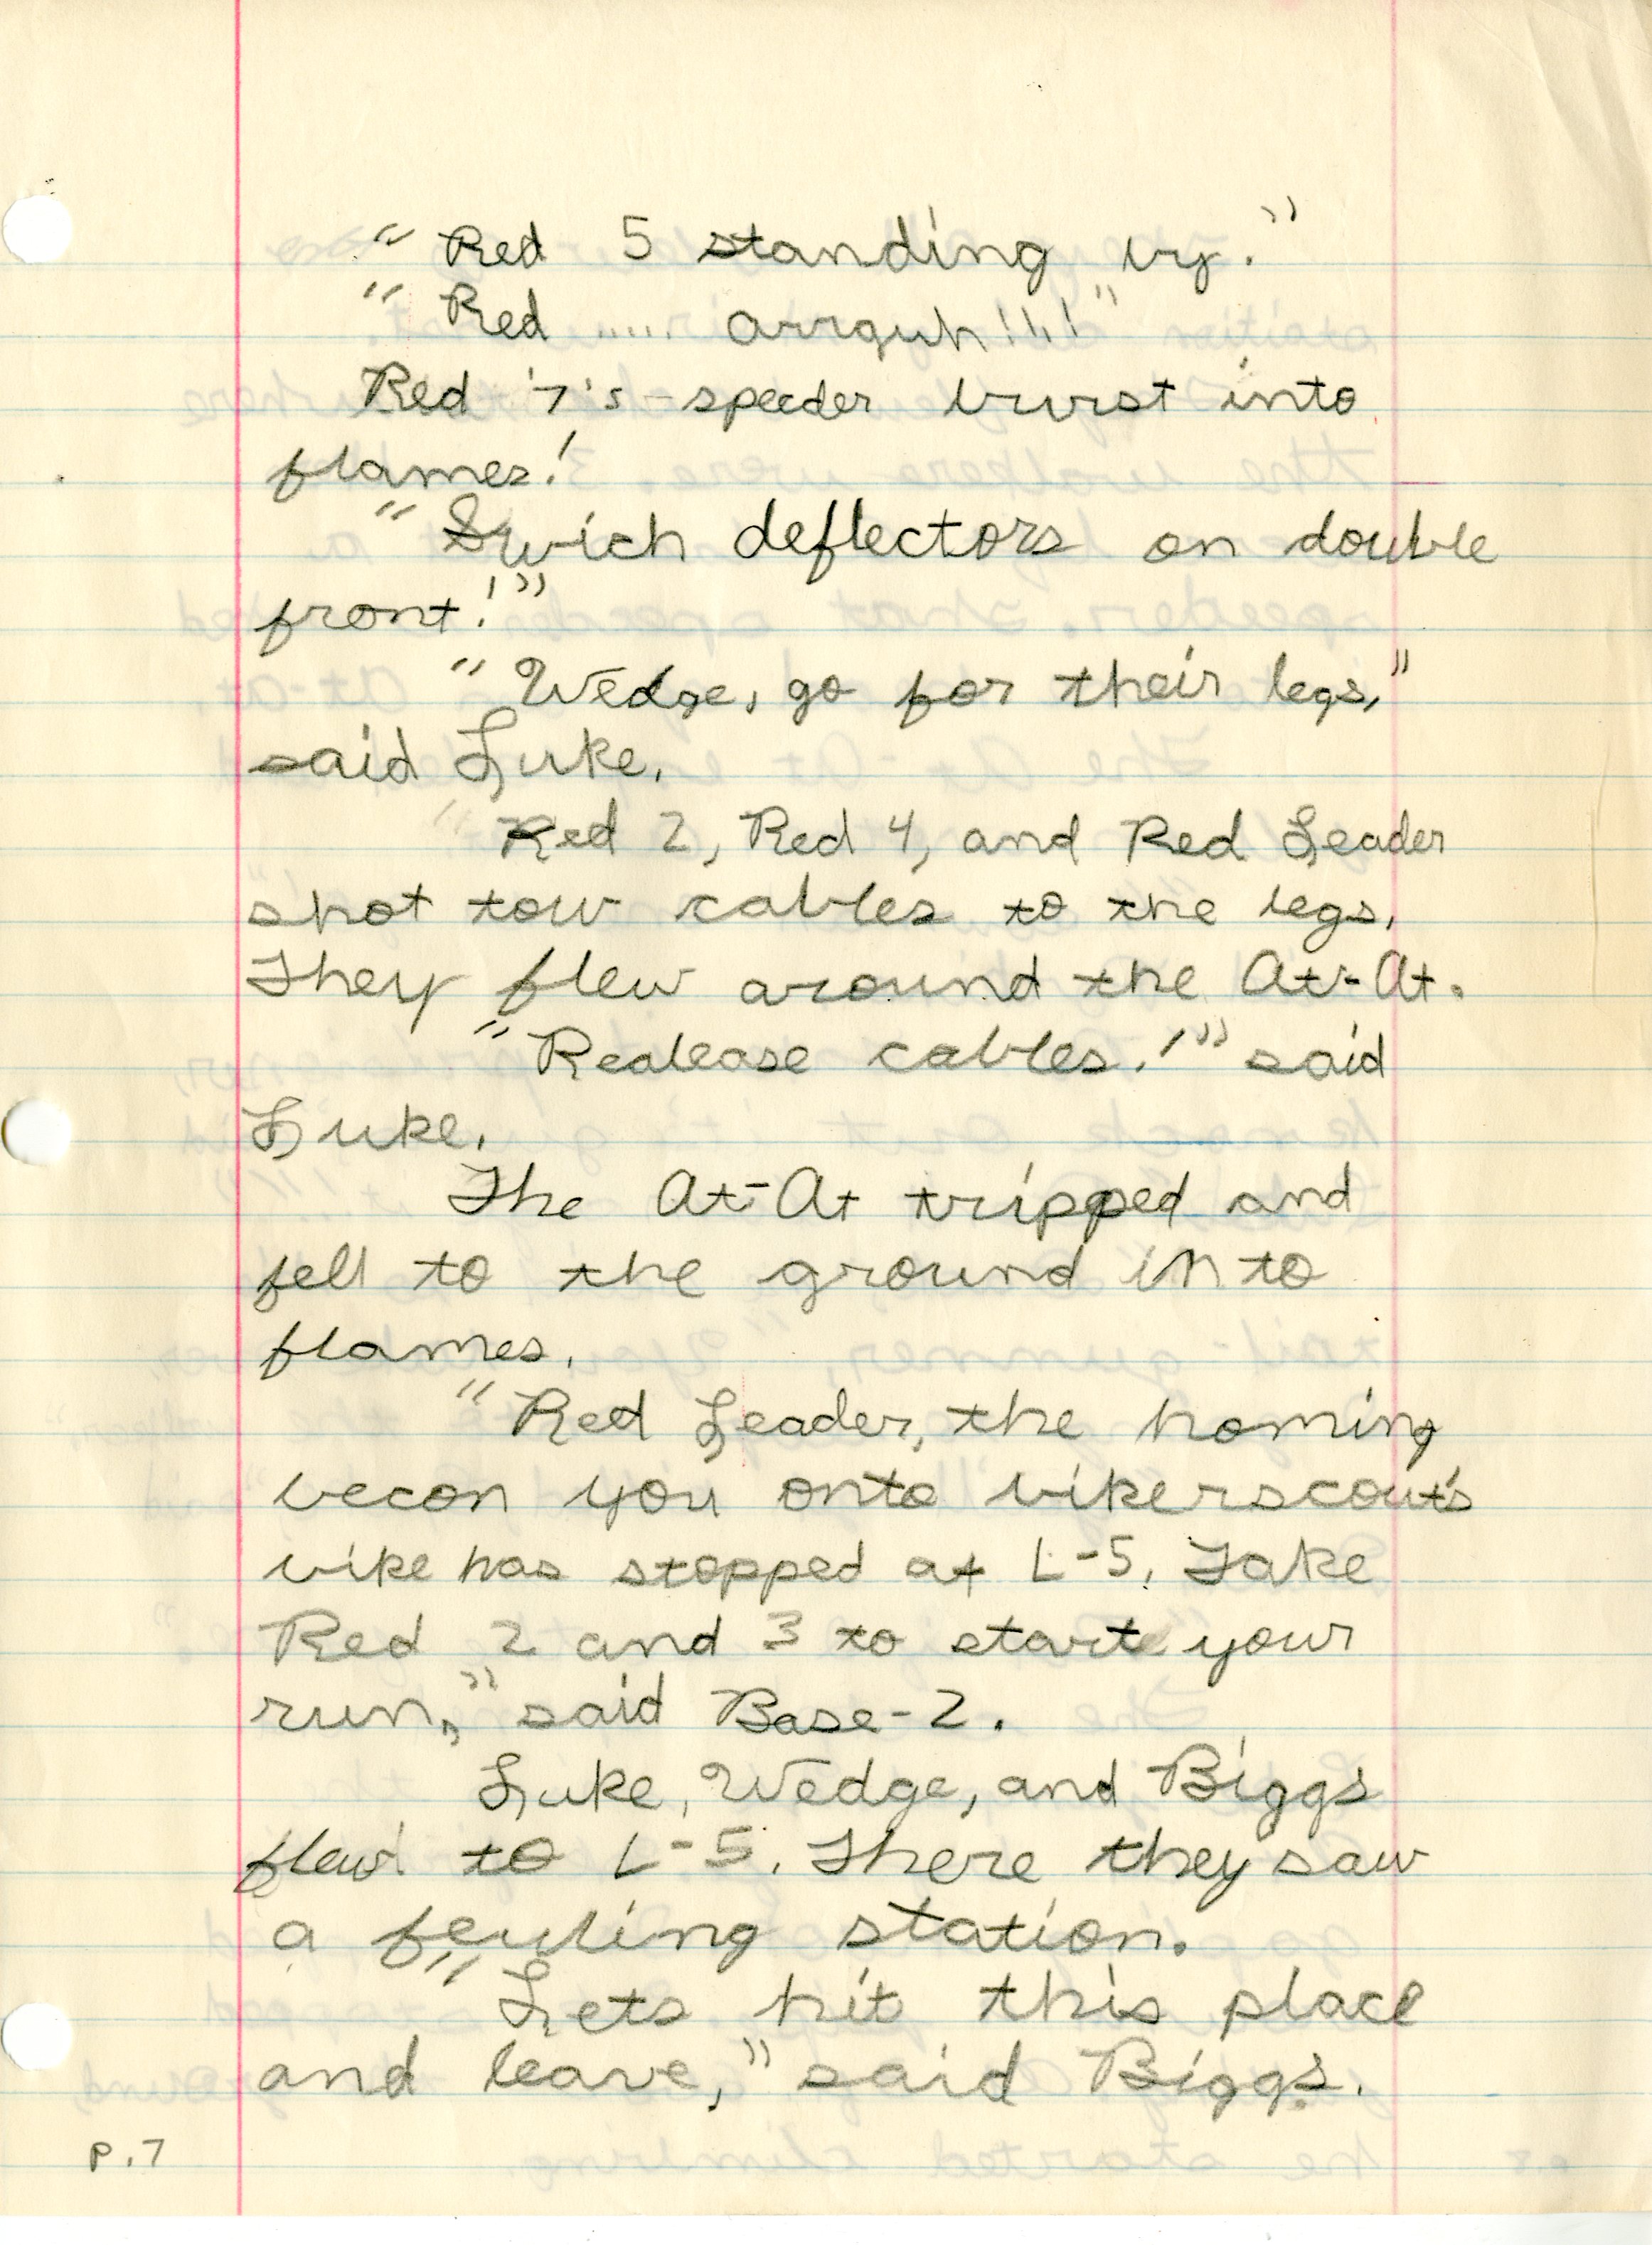 "Red 5 standing by."
"Red ..... arrguh!!!!"
Red 7's-speeder burst into
flames!
"Swich deflectors on double
front!"
"Wedge, go for their legs,"
said Luke.
Red 2, Red 4, and Red Leader
shot tow cables to the legs.
They flew around the At-At.
"Realease cables!" said
Luke.
The At-At tripped and
fell to the ground into
flames.
"Red Leader, the homing
becon you onto bikerscouts
bike has stopped at L-5. Take
Red 2 and 3 to start your
run," said Base-2.
Luke, Wedge, and Biggs
flew to L-5. There they saw
a feuling station.
"Lets hit this place
and leave," said Biggs.
p.7